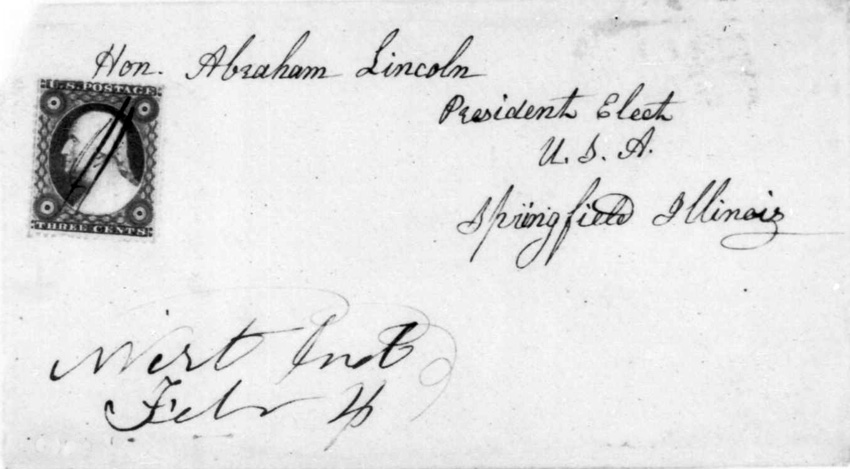 Hon. Abraham Lincoln
U.S. POSTAGE
President Elect
U. S. A.
Springfield Illinois
THREE CENTS
Wirt Ind
Feb 4